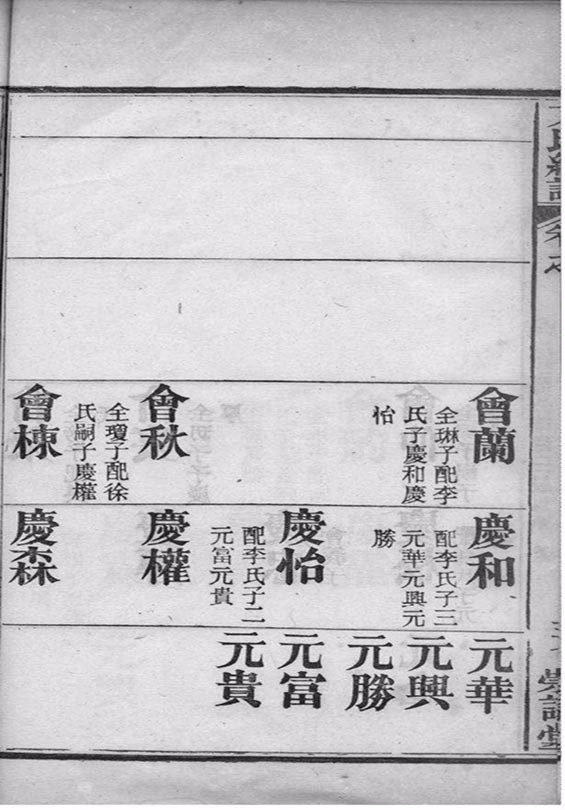 會蘭
全琳子配李
氏子慶和慶
怡
會秋
全瓊子配徐
氏嗣子慶權
會棟
慶和
配李氏子三
元華元興元
勝
慶怡
配李氏子二
元富元貴
慶權
慶森
元華
元興
元勝
元富
元貴